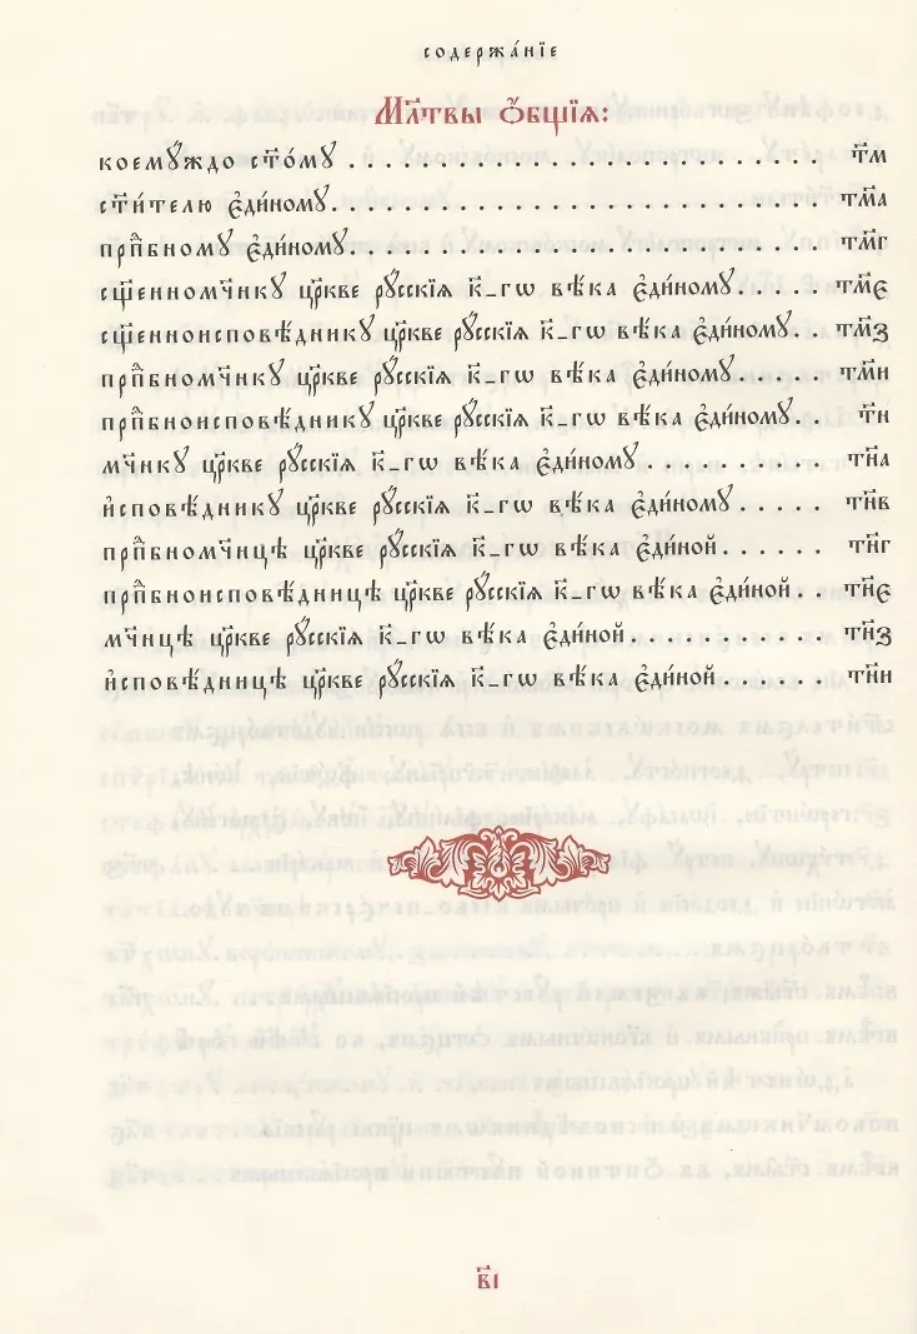 содержа́нїе
Мл҃твы ѻ҆́бщїѧ:
коемꙋ́ждо ст҃о́мꙋ . . . . . . . . . . . . . . . . . . . . . . т҃м
ст҃и́телю є҆ди́номꙋ. . . . . . . . . . . . . . . . . . . . . . . тм҃а
прпⷣбномꙋ є҆ди́номꙋ. . . . . . . . . . . . . . . . . . . . . . тм҃г
сщ҃енномч҃нкꙋ цр҃кве рꙋ́сскїѧ к҃_гѡ вѣ́ка є҆ди́номꙋ. . . . . тм҃є
сщ҃енноисповѣ́дникꙋ цр҃кве рꙋ́сскїѧ к҃_гѡ вѣ́ка є҆ди́номꙋ. . тм҃з
прпⷣбномч҃нкꙋ цр҃кве рꙋ́сскїѧ к҃_гѡ вѣ́ка є҆ди́номꙋ. . . . . тм҃и
прпⷣбноисповѣ́дникꙋ цр҃кве рꙋ́сскїѧ к҃_гѡ вѣ́ка є҆ди́номꙋ. . т҃н
мч҃нкꙋ цр҃кве рꙋ́сскїѧ к҃_гѡ вѣ́ка є҆ди́номꙋ. . . . . . . . . тн҃а
и҆сповѣ́дникꙋ цр҃кве рꙋ́сскїѧ к҃_гѡ вѣ́ка є҆ди́номꙋ. . . . . тн҃в
прпⷣбномч҃ницѣ цр҃кве рꙋ́сскїѧ к҃_гѡ вѣ́ка є҆ди́ной. . . . . . тн҃г
прпⷣбноисповѣ́дницѣ цр҃кве рꙋ́сскїѧ к҃_гѡ вѣ́ка є҆ди́ной. . . тн҃є
мч҃ницѣ цр҃кве рꙋ́сскїѧ к҃_гѡ вѣ́ка є҆ди́ной. . . . . . . . . . тн҃з
и҆сповѣ́дницѣ цр҃кве рꙋ́сскїѧ к҃_гѡ вѣ́ка є҆ди́ной. . . . . . тн҃и
в҃і